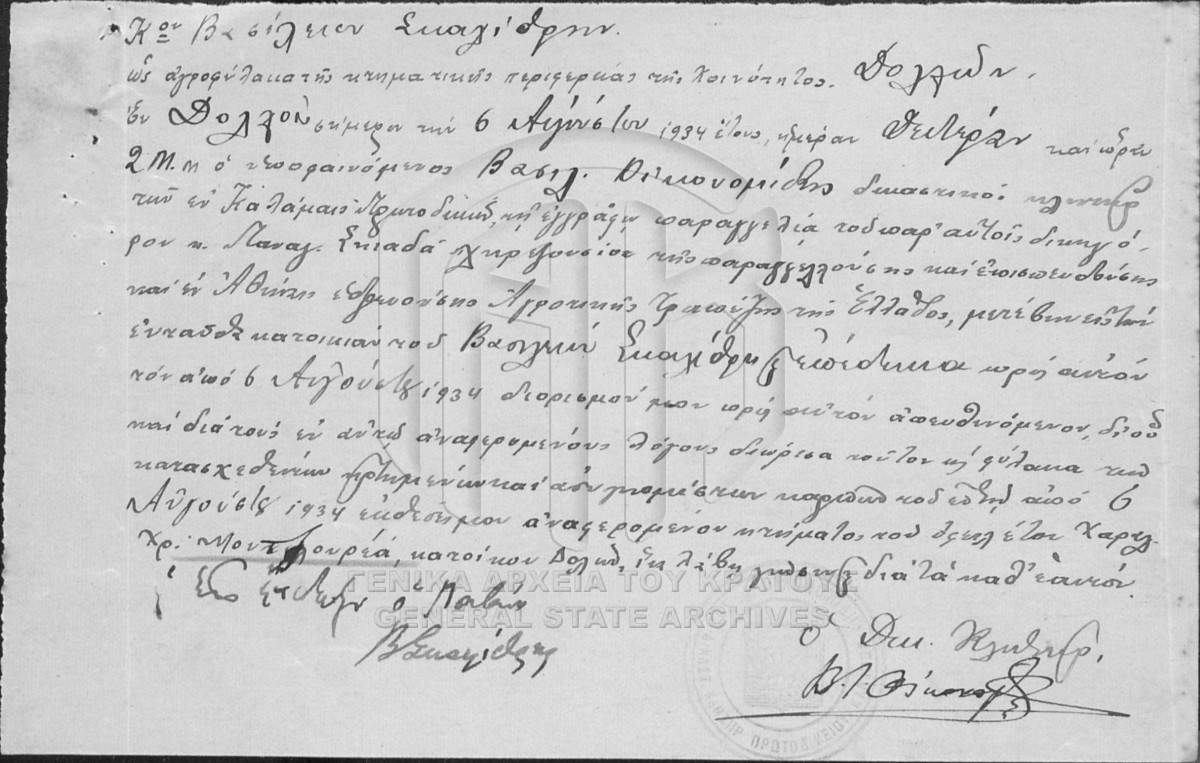 Κον Βασίλειον Σκαλίδρην.
ὡς ἀγροφύλακα τῆς κτηματικῆς περιφερείας τῆς Κοινότητος Δολλῶν.
Ἐν Δολλοῖ σήμερον τὴν 6 Αὐγούστου 1934 ἔτους, ἡμέραν Δευτέραν καὶ ὥραν
2 Μ.Μ ὁ ὑποφαινόμενος Βασιλ. Οἰκονομίδης δικαστικὸς κλητὴρ
τῶν ἐν Καλάμαις Πρωτοδικῶν, τῇ ἐγγράφῳ παραγγελίᾳ τοῦ παρ' αὐτοῖς δικηγό-
ρου κ. Παναγ. Σκιαδᾶ πληρεξουσίου τῆς παραγγελλούσης καὶ ἐπισπευδούσης
καὶ ἐν Ἀθήναις ἑδρευούσης Ἀγροτικῆς Τραπέζης τῆς Ἑλλάδος, μετέβην εἰς τὴν
ἐνταῦθα κατοικίαν τοῦ Βασιλείου Σκαλίδρη καὶ ἐπέδωκα πρὸς αὐτὸν
τὸν ἀπὸ 6 Αὐγούστου 1934 διορισμόν μου πρὸς αὐτὸν ἀπευθυνόμενον, δι' οὗ
καὶ διὰ τοὺς ἐν αὐτῷ ἀναφερομένους λόγους διώρισα τοῦτον ὡς φύλακα τῶν
κατασχεθέντων ἠρτημένων καὶ ἀσυγκομίστων καρπῶν τοῦ ἐν τῇ ἀπὸ 6
Αὐγούστου 1934 ἐκθέσει μου ἀναφερομένου κτήματος τοῦ ὀφειλέτου Χαραλ.
Χρ. κατοίκου Δολῶν, ἵνα λάβῃ γνῶσιν καὶ διὰ τὰ καθ' ἑαυτόν.
ὁ Λαβὼν
ΒΣκαλίδρης
Ὁ Δικ. Κλητὴρ,
Β. Ι. Οἰκονομίδης
ΓΕΝΙΚΑ ΑΡΧΕΙΑ ΤΟΥ ΚΡΑΤΟΥΣ
GENERAL STATE ARCHIVES